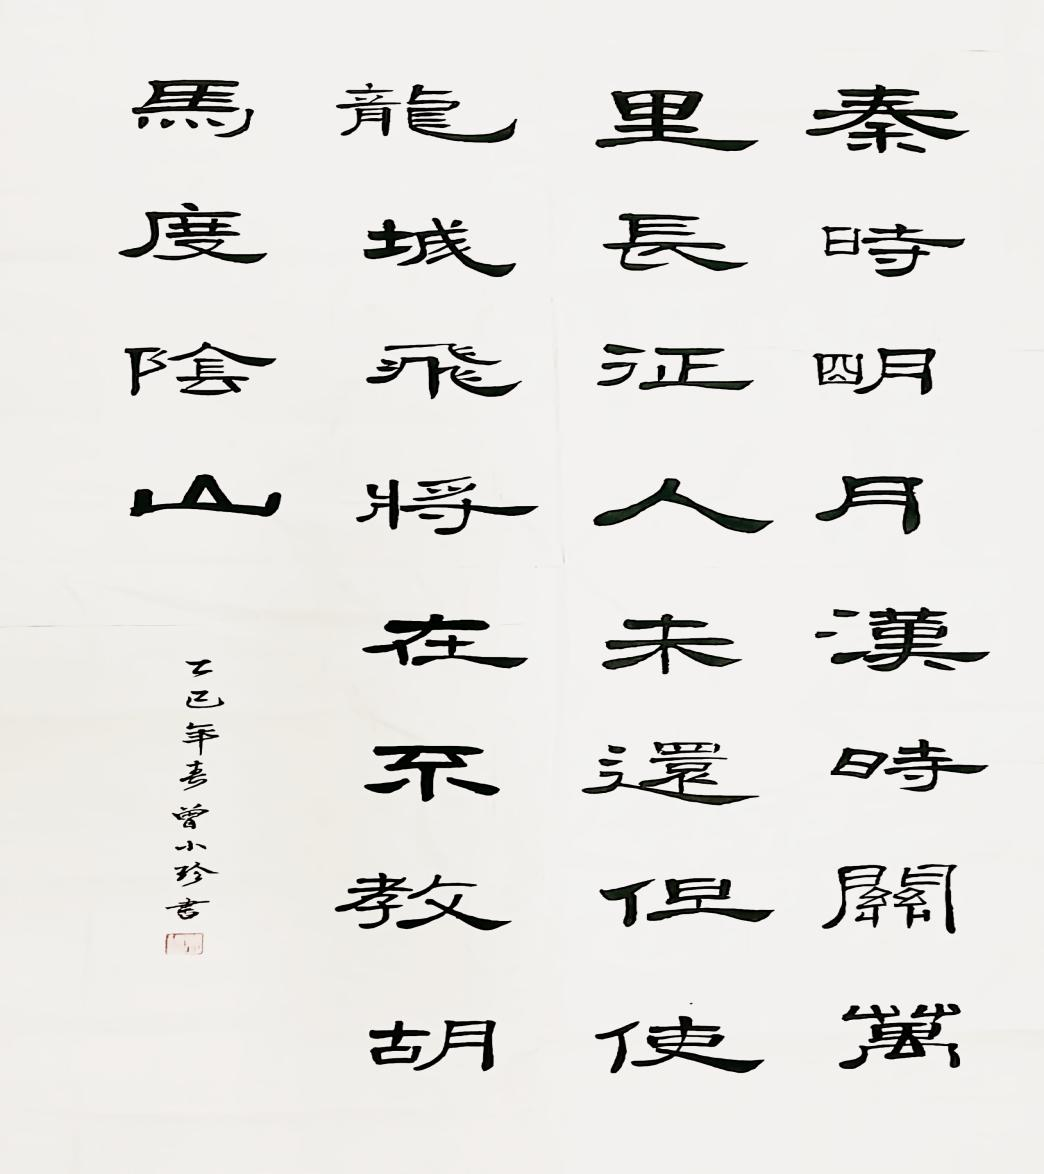 秦時明月漢時關萬
里長征人未還但使
龍城飛將在不教胡
馬度陰山
乙巳年春曾小珍書